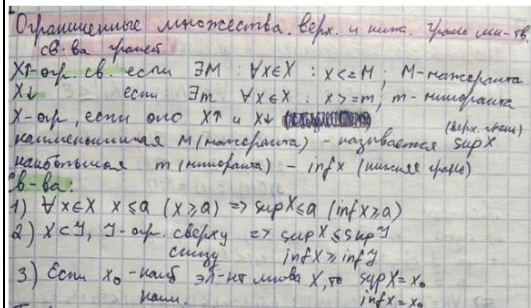 Ограниченные множества. верх. и нижн. грань мн-тв.
св-ва граней
X↑-огр. св. если ∃M : ∀x∈X : x<=M; M-мажоранта
X↓ если ∃m ∀x∈X : x>=m, m-миноранта
X-огр, если оно X↑ и X↓
наименьшая M (мажоранта) - называется sup X (верх. грань)
наибольшая m (миноранта) - inf x (нижняя грань)
Св-ва:
1) ∀x∈X x≤a (x≥a) => sup X≤a (inf x≥a)
2) X⊂Y, Y-огр. сверху => sup X≤sup Y
снизу inf X≥inf Y
3) Если x₀-наиб эл-нт мн-ва X, то sup X=x₀
наим. inf x=x₀